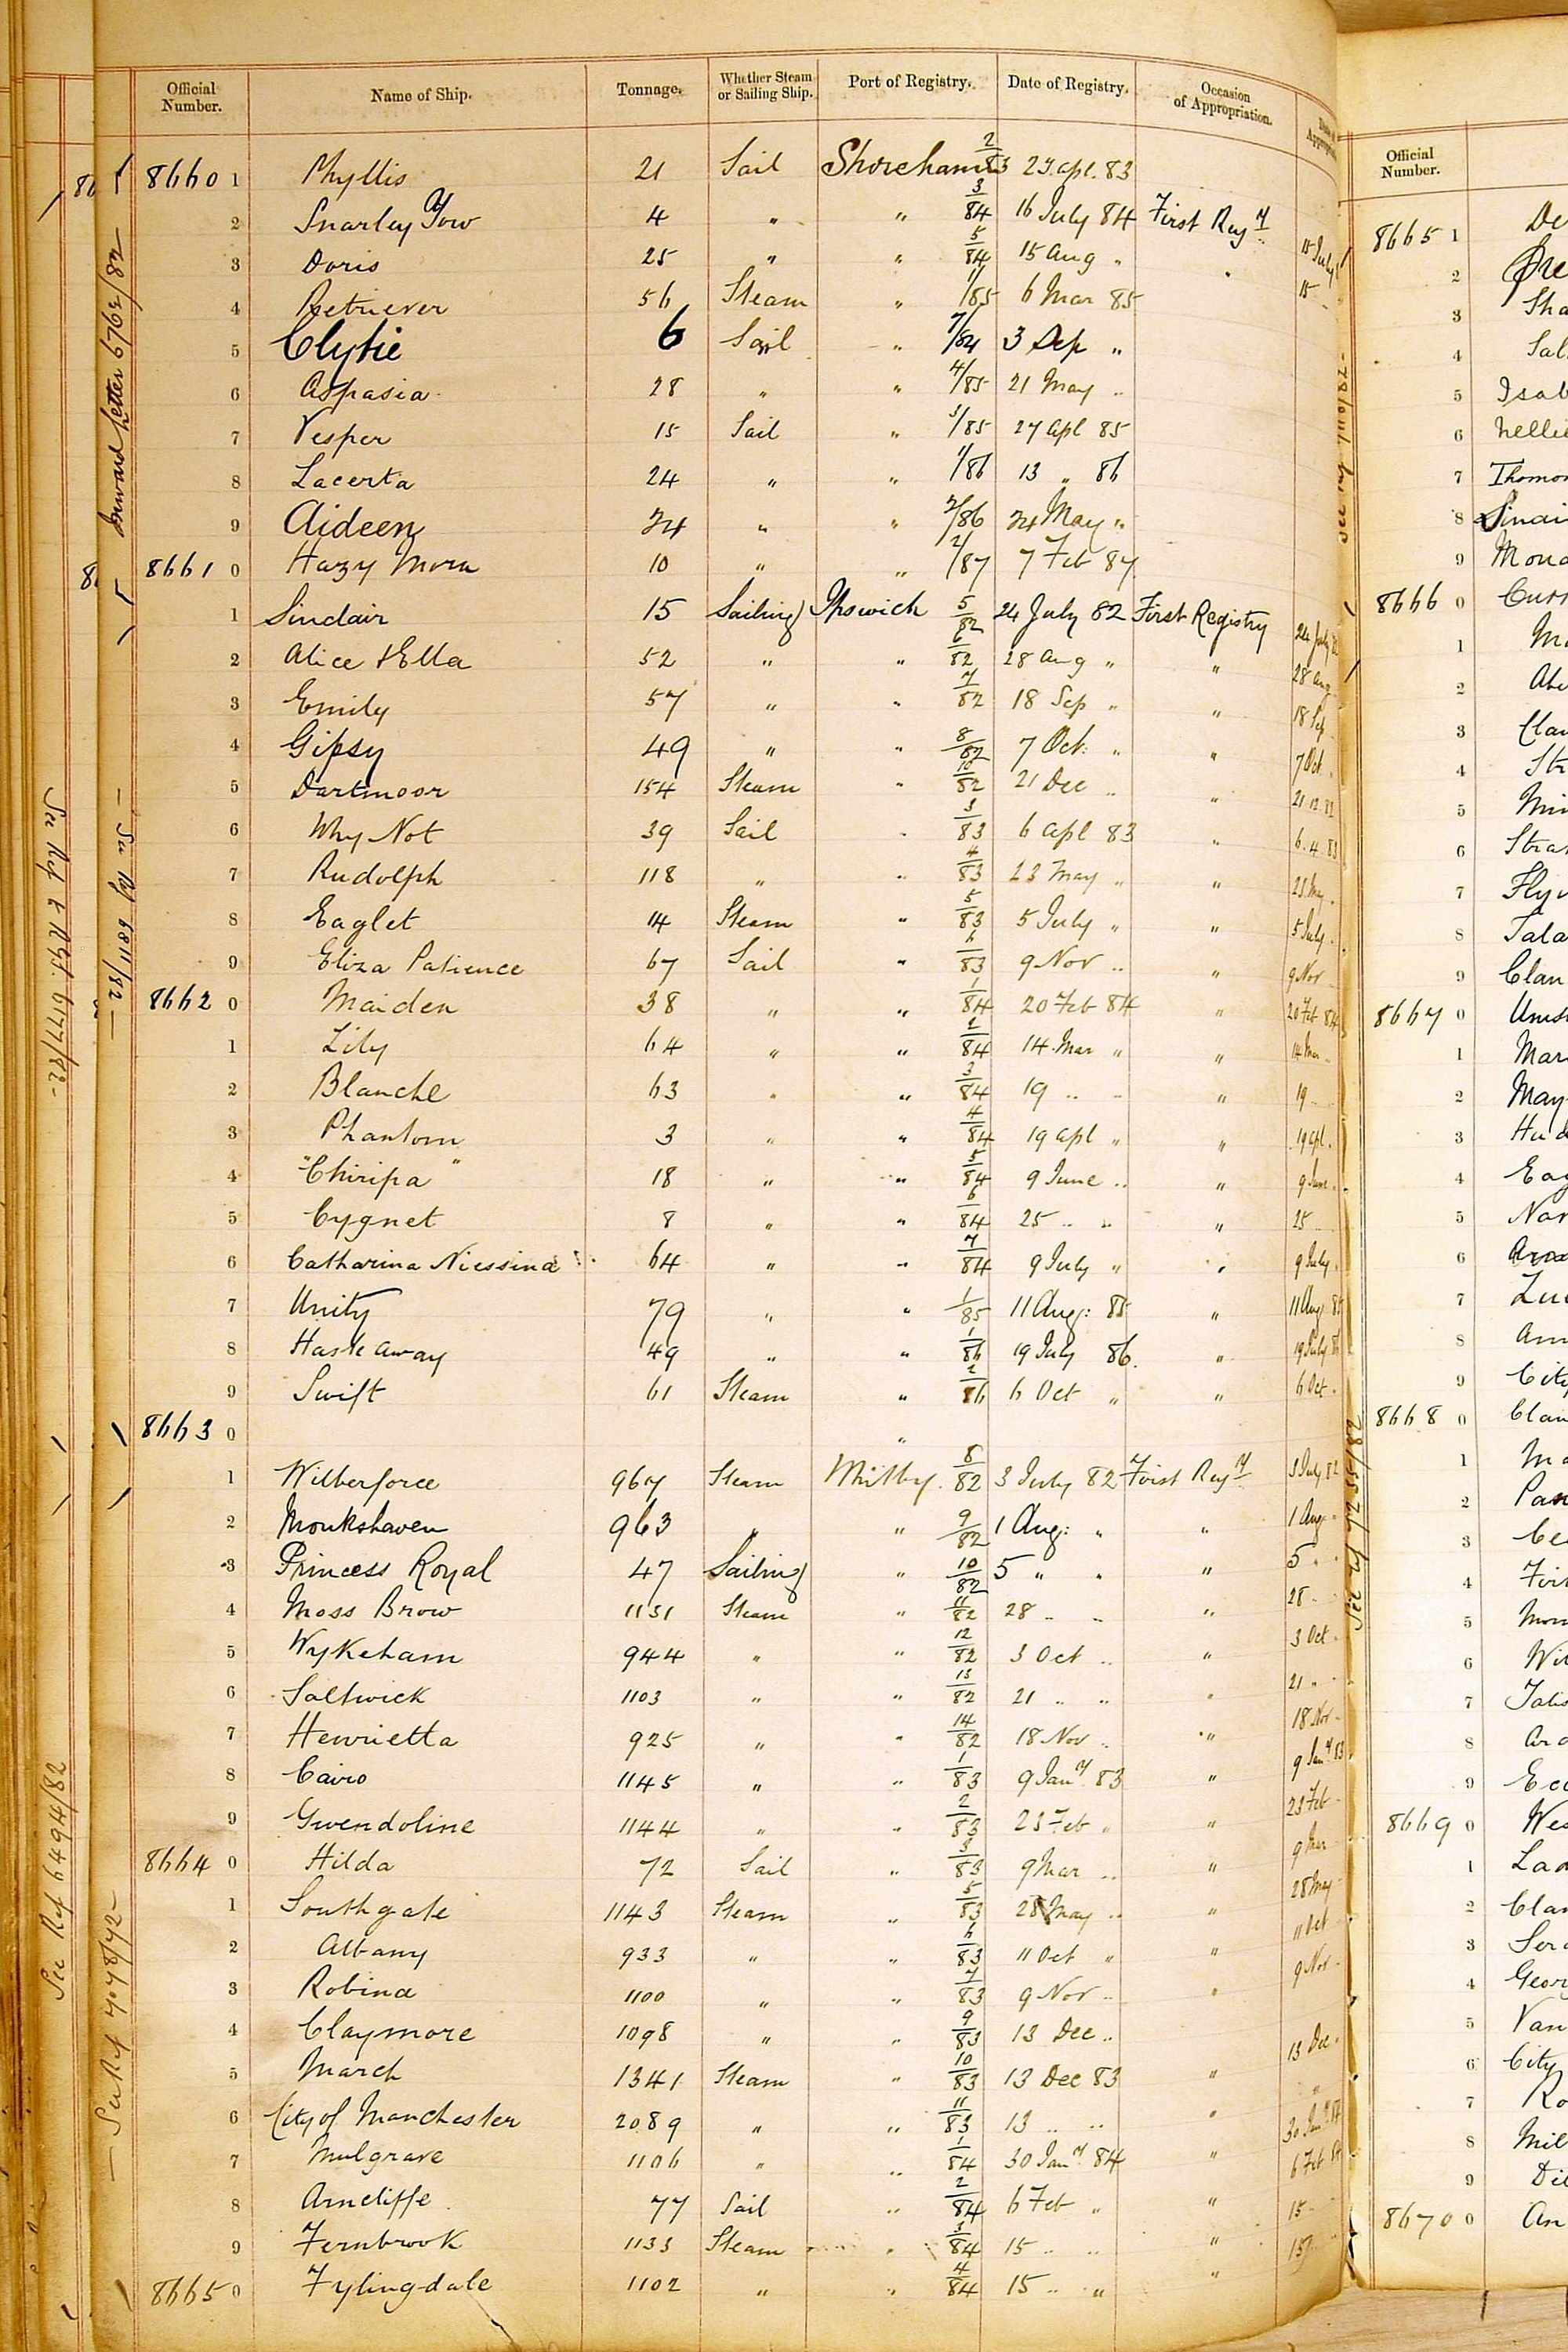 Official Number. Name of Ship. Tonnage. Whether Steam or Sailing Ship. Port of Registry. Date of Registry. Occasion of Appropriation.
8660 1 Phyllis 21 Sail Shoreham 2/83 23 Apl. 83
2 Snarley Yow 4 " " 3/84 16 July 84 First Regy
3 Doris 25 " " 5/84 15 Aug " " 15 July
4 Retriever 56 Steam " 1/85 6 Mar 85 15
5 Clytie 6 Sail " 7/84 3 Sep "
6 Aspasia 28 " " 4/85 21 May "
7 Vesper 15 Sail " 3/85 27 Apl 85
8 Lacerta 24 " " 1/86 13 " 86
9 Aideen 24 " " 2/86 24 May "
8661 0 Hazy Morn 10 " " 2/87 7 Feb 87
1 Sinclair 15 Sailing Ipswich 5/82 24 July 82 First Registry 24 July 82
2 Alice & Ella 52 " " 6/82 28 Aug " " 28 Aug
3 Emily 57 " " 7/82 18 Sep " " 18 Sep
4 Gipsy 49 " " 8/82 7 Oct: " " 7 Oct
5 Dartmoor 154 Steam " 10/82 21 Dec " " 21 12 82
6 Why Not 39 Sail " 3/83 6 Apl 83 " 6. 4. 83
7 Rudolph 118 " " 4/83 23 May " " 23 May
8 Eaglet 14 Steam " 5/83 5 July " " 5 July
9 Eliza Patience 67 Sail " 6/83 9 Nov " " 9 Nov
8662 0 Maiden 38 " " 1/84 20 Feb 84 " 20 Feb 84
1 Lily 64 " " 2/84 14 Mar " " 14 Mar
2 Blanche 63 " " 3/84 19 " " " 19
3 Phantom 3 " " 4/84 19 Apl " " 19 Apl.
4 "Chiripa" 18 " " 5/84 9 June " " 9 June
5 Cygnet 8 " " 6/84 25 " " " 25
6 Catharina Niessina 64 " " 7/84 9 July " " 9 July
7 Unity 79 " " 1/85 11 Aug: 85 " 11 Aug 85
8 Haste away 49 " " 1/86 19 July 86. " 19 July 86
9 Swift 61 Steam " 2/86 6 Oct " " 6 Oct
8663 0 "
1 Wilberforce 967 Steam Whitby. 8/82 3 July 82 First Regy 3 July 82
2 Monkshaven 963 " " 9/82 1 Aug: " " 1 Aug
3 Princess Royal 47 Sailing " 10/82 5 " " " 5 "
4 Moss Brow 1131 Steam " 11/82 28 " " " 28
5 Wykeham 944 " " 12/82 3 Oct " " 3 Oct
6 Saltwick 1103 " " 13/82 21 " " " 21 "
7 Henrietta 925 " " 14/82 18 Nov " " 18 Nov
8 Cairo 1145 " " 1/83 9 Jany 83 " 9 Jany 83
9 Gwendoline 1144 " " 2/83 23 Feb " " 23 Feb
8664 0 Hilda 72 Sail " 3/83 9 Mar " " 9 Mar
1 Southgate 1143 Steam " 5/83 28 May " " 28 May
2 Albany 933 " " 6/83 11 Oct " " 11 Oct
3 Robina 1100 " " 7/83 9 Nov " " 9 Nov
4 Claymore 1098 " " 9/83 13 Dec " 13 Dec
5 March 1341 Steam " 10/83 13 Dec 83 " "
6 City of Manchester 2089 " " 11/83 13 " " " 30 Jany 84
7 Mulgrave 1106 " " 1/84 30 Jany 84 " 6 Feb 84
8 Arncliffe 77 Sail " 2/84 6 Feb " " 15
9 Fernbrook 1133 Steam " 3/84 15 " " " 15
8665 0 Fylingdale 1102 " " 4/84 15 " " "
86
Inward Letter 6762/82
See Ref 6811/82
See Ref 6494/82
See Ref 7078/72
See Ref 7255/82
Official Number.
8665 1 De
2
3 Sha
4 Sal
5 Isab
6 Nellie
7 Thomon
8 Sinai
9 Mona
8666 0 Curr
1 Ma
2 Abe
3 Clan
4 Str
5 Min
6 Strat
7 Flyi
8 Tala
9 Clan
8667 0
1 Mar
2 May
3 Hud
4 Eag
5 Nor
6
7 Lu
8 Am
9 City
8668 0 Clan
1 Ma
2 Pan
3 Ce
4 Fir
5 Mon
6 Wil
7 Talis
8 Ard
9 Ecc
8669 0 Wes
1 Lad
2 Clan
3 Ser
4 Geor
5 Van
6 City
7 Ro
8 Mil
9 Dil
8670 0 An